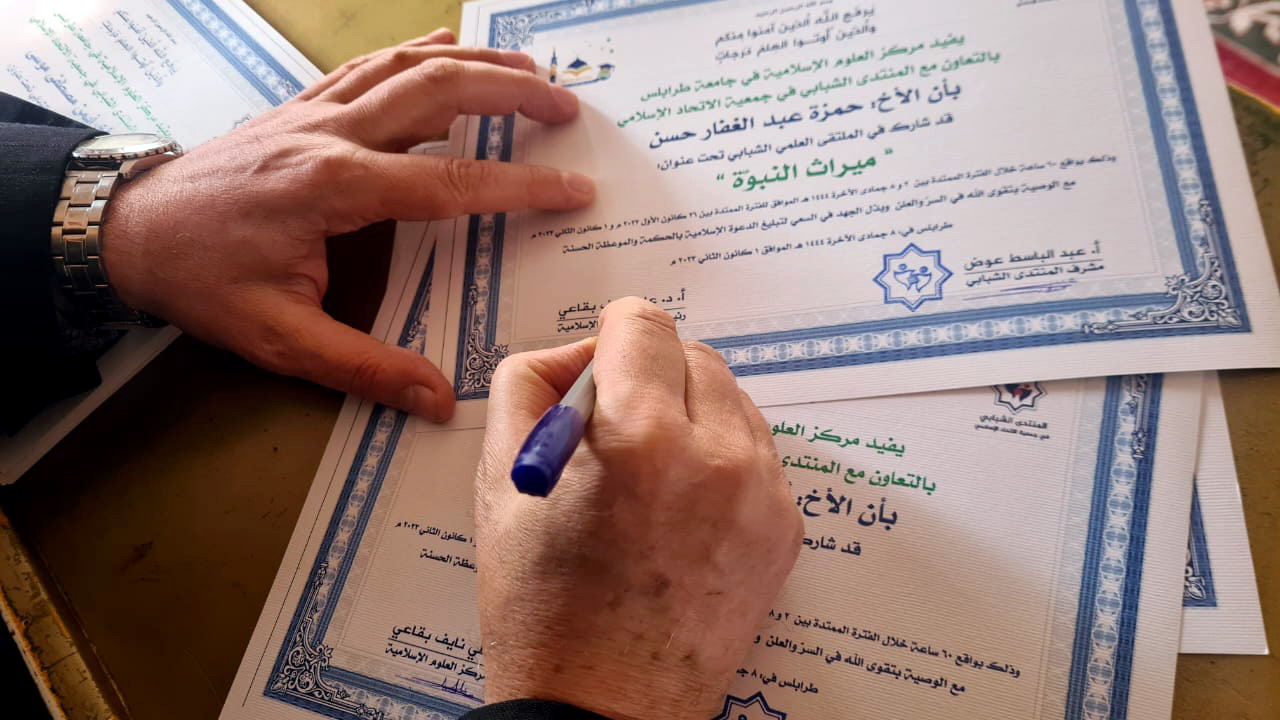 بسم الله الرحمن الرحيم
يرفع الله الذين آمنوا منكم
والذين أوتوا العلم درجات
يفيد مركز العلوم الإسلامية في جامعة طرابلس
بالتعاون مع المنتدى الشبابي في جمعية الاتحاد الإسلامي
بأن الأخ: حمزة عبد الغفار حسن
قد شارك في الملتقى العلمي الشبابي تحت عنوان:
" ميراث النبوّة "
وذلك بواقع ٦٠ ساعة خلال الفترة الممتدة بين ٢ و ٨ جمادى الآخرة ١٤٤٤ هـ الموافق للفترة الممتدة بين ٢٦ كانون الأول ٢٠٢٢ م و ١ كانون الثاني ٢٠٢٣ م
مع الوصية بتقوى الله في السرّ والعلن وبذل الجهد في السعي لتبليغ الدعوة الإسلامية بالحكمة والموعظة الحسنة
طرابلس في: ٨ جمادى الآخرة ١٤٤٤ هـ الموافق ١ كانون الثاني ٢٠٢٣ م
أ. عبد الباسط عوض
مشرف المنتدى الشبابي
أ. د. بقاعي
الإسلامية
المنتدى الشبابي
في جمعية الاتحاد الإسلامي
يفيد مركز العلو
بالتعاون مع المنتدى
بأن الأخ:
قد شارك
١ كانون الثاني ٢٠٢٣ م
الحسنة
وذلك بواقع ٦٠ ساعة خلال الفترة الممتدة بين ٢ و ٨
مع الوصية بتقوى الله في السرّ والعلن و
طرابلس في: ٨ جمادى
نايف بقاعي
مركز العلوم الإسلامية